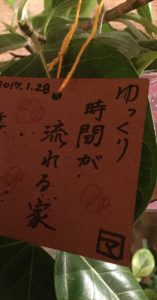 2017.1.28
ゆっくり
時間が
流れる家
マ